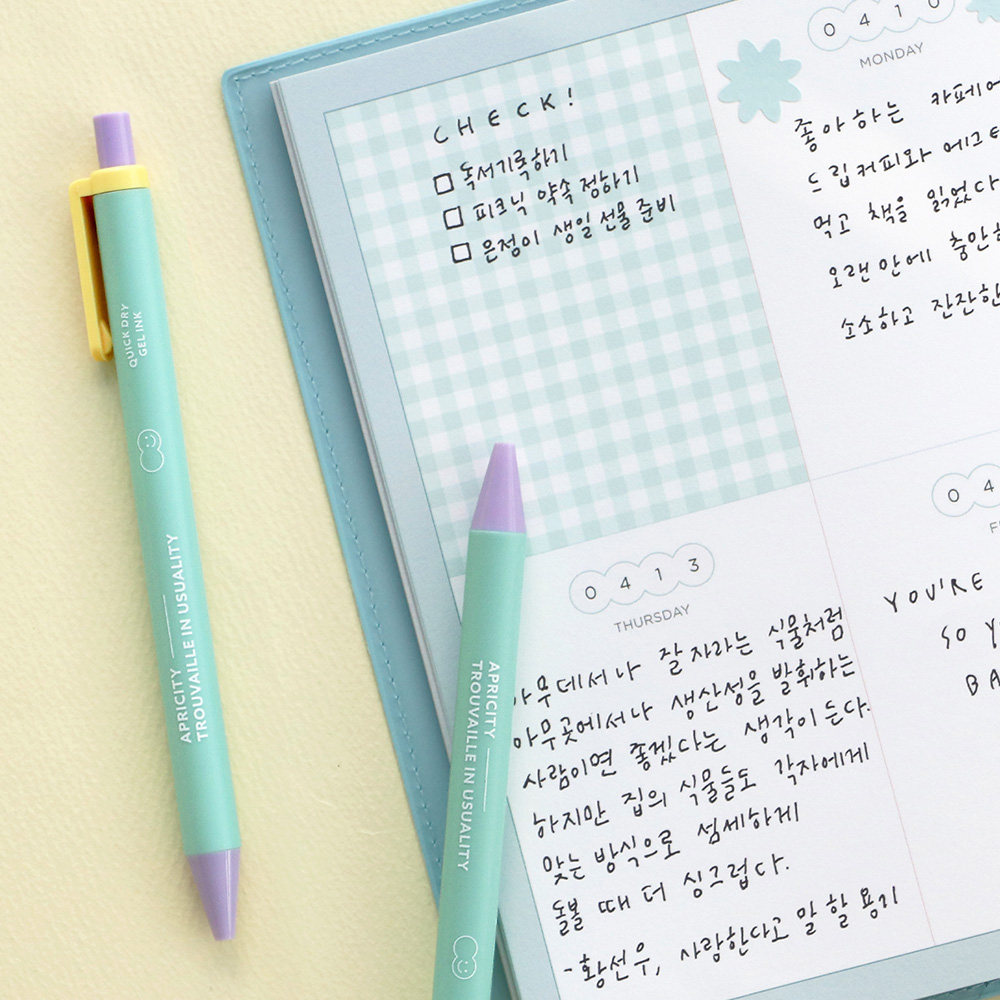 QUICK DRY
GEL INK
APRICITY
TROUVAILLE IN USUALITY
CHECK!
독서기록하기
피크닉 약속 정하기
은정이 생일 선물 준비
0410
MONDAY
좋아하는 카페에
드립커피와 에그
먹고 책을 읽었다
오랜만에 충만한
소소하고 잔잔한
0413
THURSDAY
아무데서나 잘 자라는 식물처럼
아무곳에서나 생산성을 발휘하는
사람이면 좋겠다는 생각이 든다.
하지만 집의 식물들도 각자에게
맞는 방식으로 섬세하게
돌볼 때 더 싱그럽다.
-황선우, 사람한다고 말 할 용기
04
YOU'RE
SO
BA
APRICITY
TROUVAILLE IN USUALITY